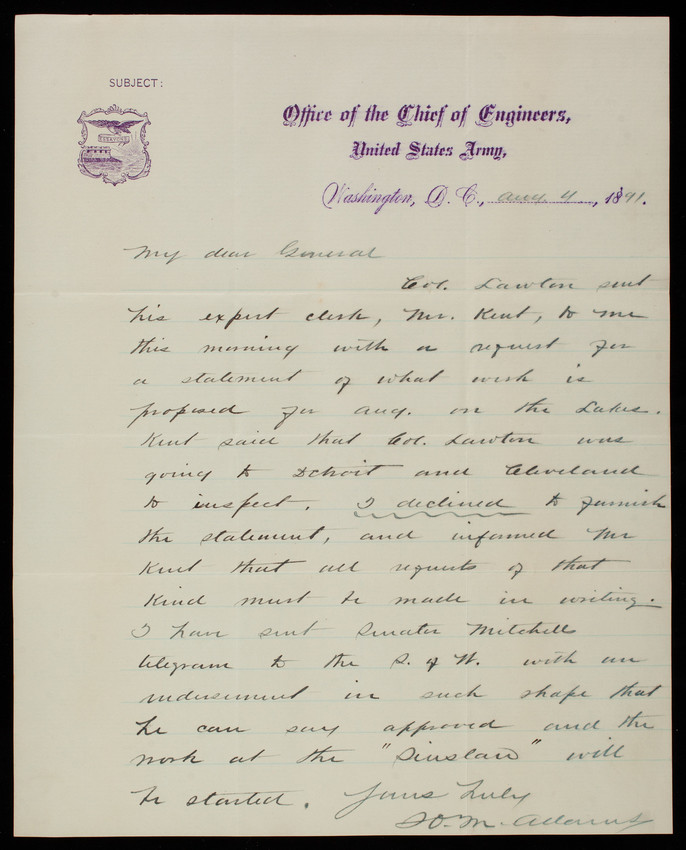 SUBJECT:
ESSAYONS
Office of the Chief of Engineers,
United States Army,
Washington, D. C., Aug. 4, 1891.
My dear General
Col. Lawton sent
his expert clerk, Mr. Kent, to me
this morning with a request for
a statement of what work is
proposed for Aug. on the Lakes.
Kent said that Col. Lawton was
going to Detroit and Cleveland
to inspect. I declined to furnish
the statement, and informed Mr
Kent that all requests of that
kind must be made in writing.
I have sent Senator Mitchells
telegram to the S. of W. with an
indorsement in such shape that
he can say approved and the
work at the "Siuslaw" will
be started. Yours truly
M. Adams